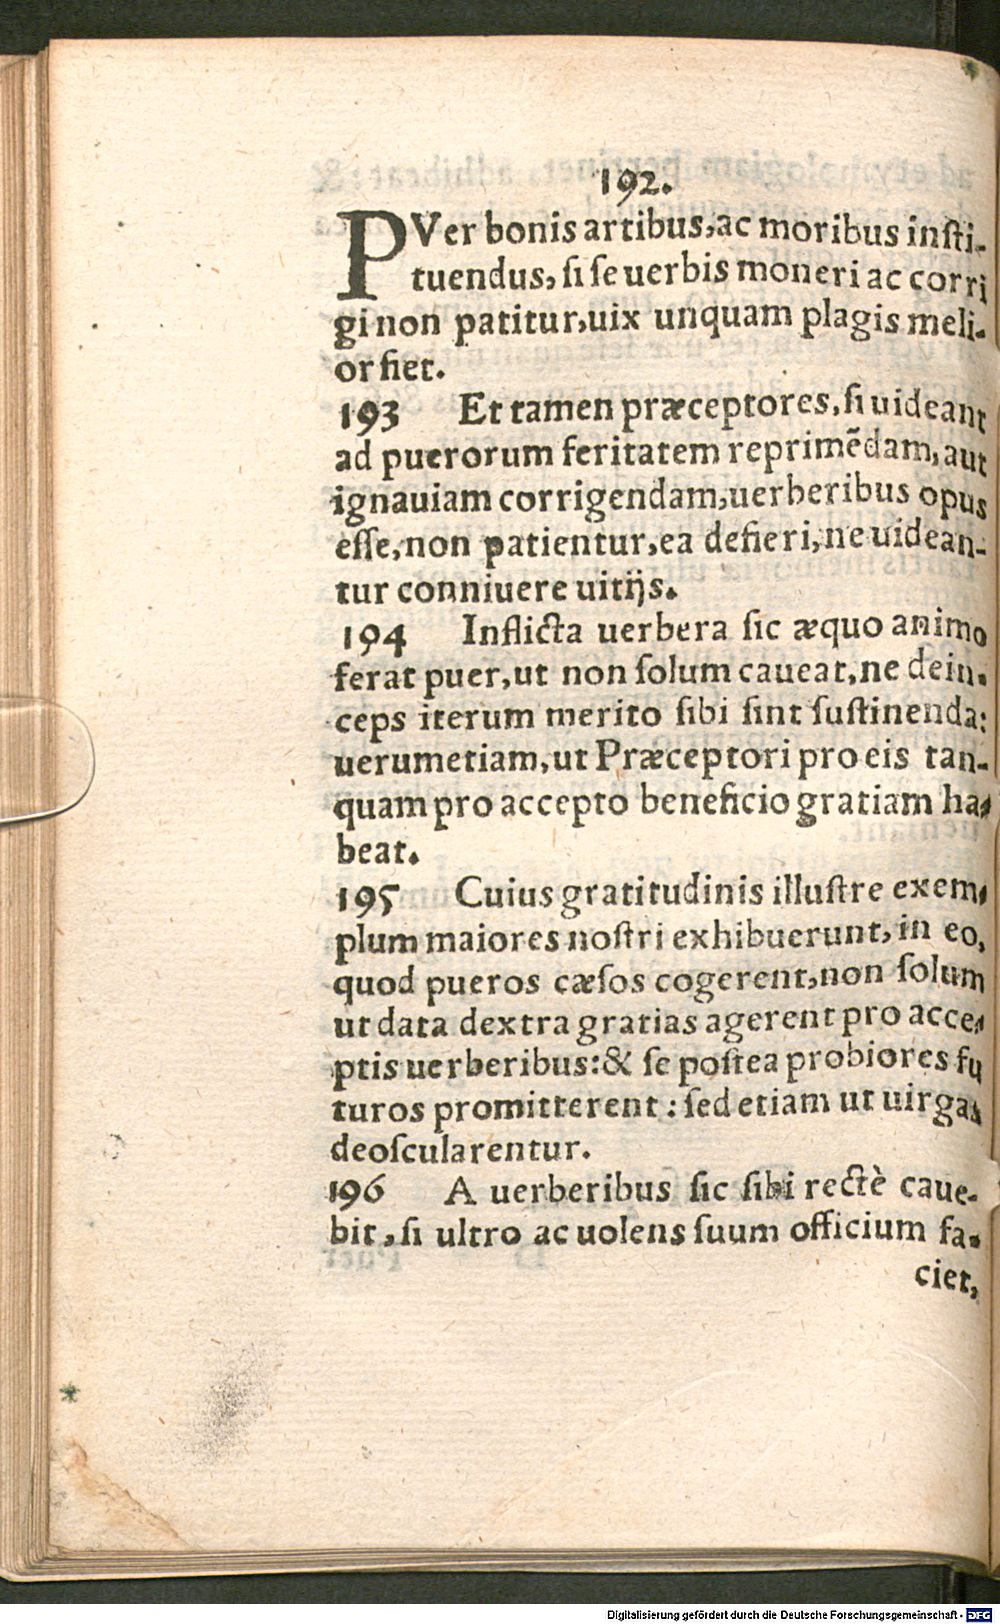 192.
PVer bonis artibus, ac moribus insti-
tuendus, si se uerbis moneri ac corri
gi non patitur, uix unquam plagis meli-
or fiet.
193 Et tamen præceptores, si uideant
ad puerorum feritatem reprimẽdam, aut
ignauiam corrigendam, uerberibus opus
esse, non patientur, ea defieri, ne uidean-
tur conniuere uitijs.
194 Inflicta uerbera sic æquo animo
ferat puer, ut non solum caueat, ne dein-
ceps iterum merito sibi sint sustinenda:
uerumetiam, ut Præceptori pro eis tan-
quam pro accepto beneficio gratiam ha-
beat.
195 Cuius gratitudinis illustre exem-
plum maiores nostri exhibuerunt, in eo,
quod pueros cæsos cogerent, non solum
ut data dextra gratias agerent pro acce-
ptis uerberibus: & se postea probiores fu
turos promitterent: sed etiam ut uirgas
deoscularentur.
196 A uerberibus sic sibi rectè caue-
bit, si ultro ac uolens suum officium fa-
ciet,
Digitalisierung gefördert durch die Deutsche Forschungsgemeinschaft - DFG